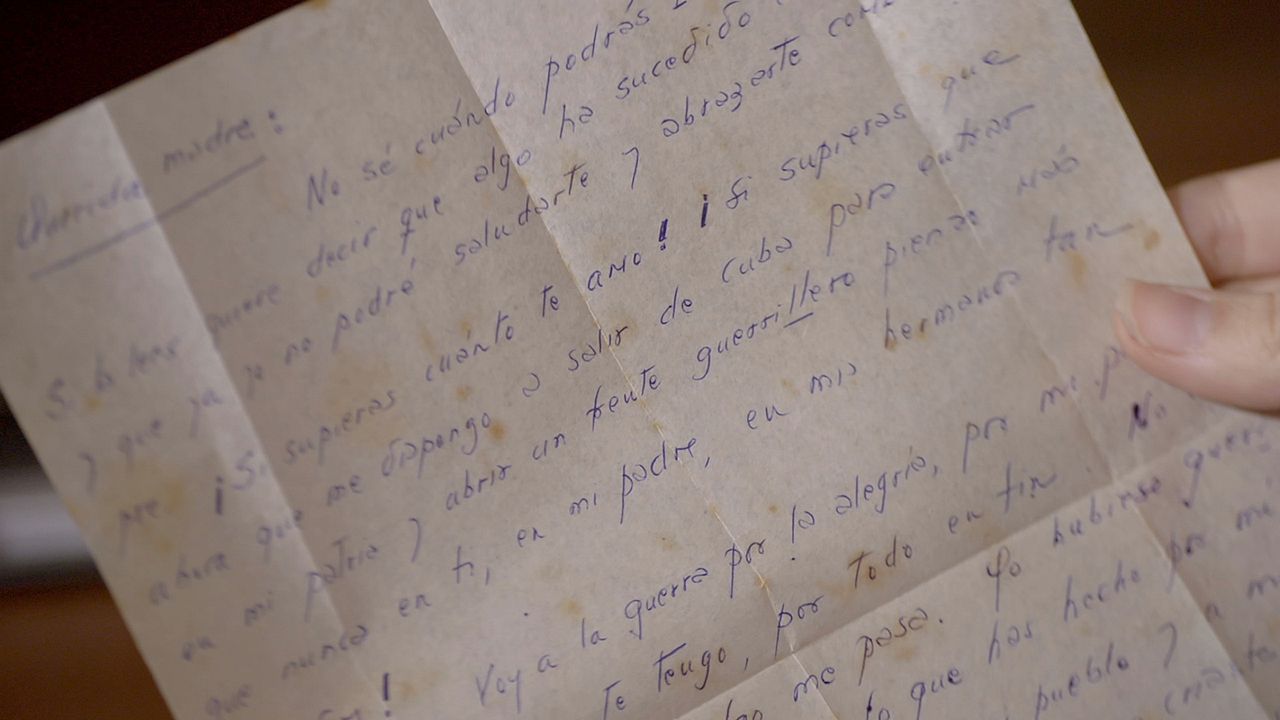 Querida madre:
No sé cuándo podrás
Si la lees quiere decir que algo ha sucedido
y que ya no podré saludarte y abrazarte como
pre ¡Si supieras cuánto te amo! ¡Si supieras que
ahora que me dispongo a salir de Cuba para entrar
en mi patria y abrir un frente guerrillero pienso más
que nunca en ti, en mi padre, en mis hermanos tan
! Voy a la guerra por la alegría, por mi
te tengo, por todo en fin. No
me pasa. Yo hubiese
lo que has hecho por mí
pueblo y a